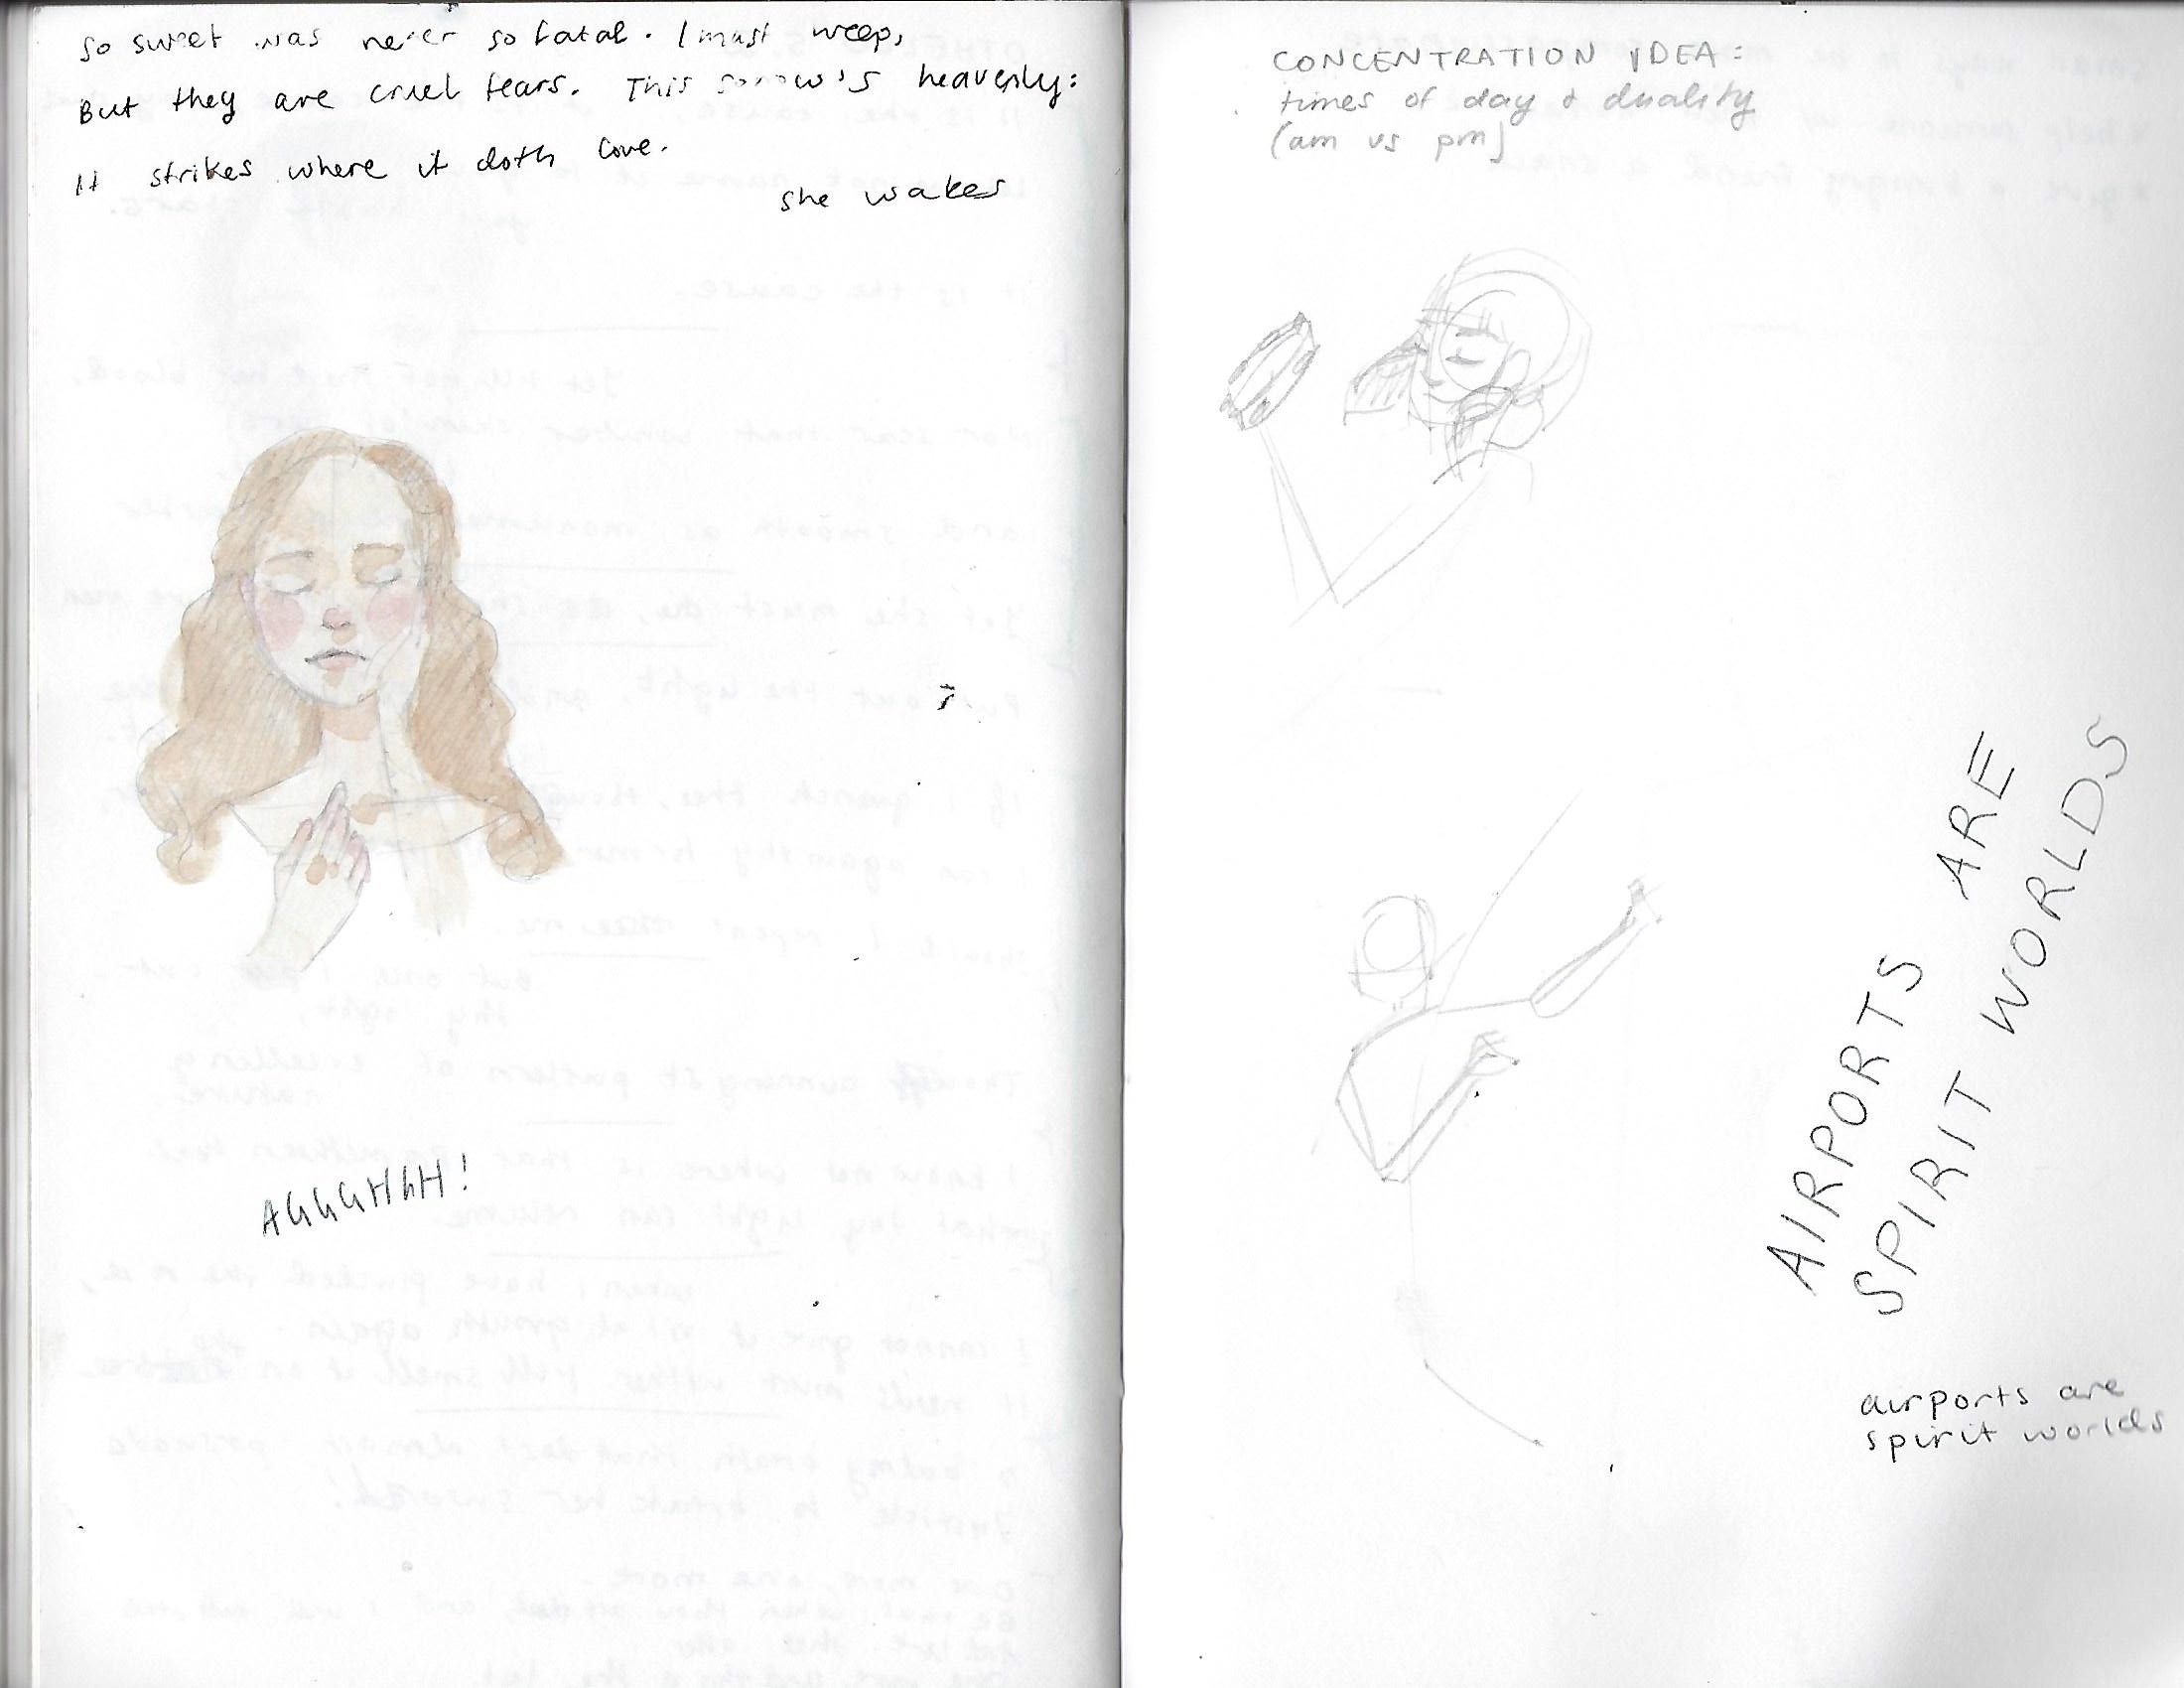 so sweet was never so fatal. I must weep,
But they are cruel tears. This sorrow's heavenly:
It strikes where it doth love.
she wakes
AhhhHhH!
CONCENTRATION IDEA:
times of day & duality
(am vs pm)
AIRPORTS ARE
SPIRIT WORLDS
airports are
spirit worlds